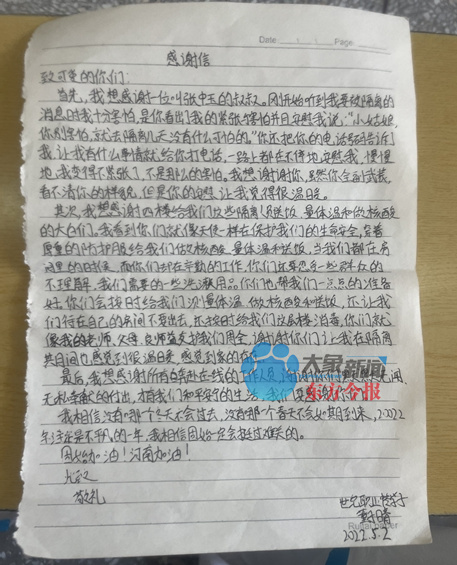 Date
Page
感谢信
致可爱的你们：
首先，我想感谢一位叫张中玉的叔叔。刚开始听到我要被隔离的
消息时我十分害怕，是你看出了我的紧张害怕并且安慰我说："小姑娘，
你别害怕，就去隔离几天没有什么可怕的。"你还把你的电话号码告诉
我，让我有什么事情就给你打电话，一路上都在不停地安慰我，慢慢
地我变得不紧张了，不是那么的害怕。我想谢谢你，虽然你全副武装，
看不清你的样貌，但是你的安慰让我觉得很温暖。
其次，我想感谢四楼给我们这些隔离人员送饭、量体温和做核酸
的大白们。我看到你们就像天使一样在保护我们的生命安全，穿着
厚重的防护服给我们做核酸、量体温和送饭，当我们都在房
间里的时候，而你们却在辛勤的工作，你们还要忍受一些
不理解，我们需要的一些洗漱用品你们也帮我们一点点的准备
好。你们会按时给我们测量体温、做核酸和送饭，还让我
们待在自己的房间不要出去，还按时给我们这层楼消毒，你们就
像我的老师、父母，良师益友护我们周全，谢谢你们让我在隔离
其间也感觉到很温暖，感觉到家的存在。
最后，我想感谢所有奔赴在线的工作人员，谢谢你们
无私奉献的付出，才有我们和平安宁的生活，我们
我相信没有那个冬天不会过去，没有那个春天不会如期到来，2022
年注定是不平凡的一年，我相信固始一定会挺过难关的。
固始加油！河南加油！
此致
敬礼
2022.5.2
大象新闻
东方今报